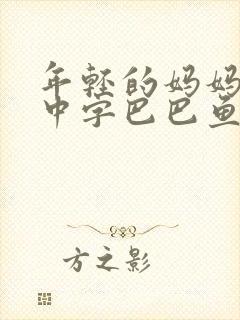 年轻的妈妈
中字巴巴鱼
方之影